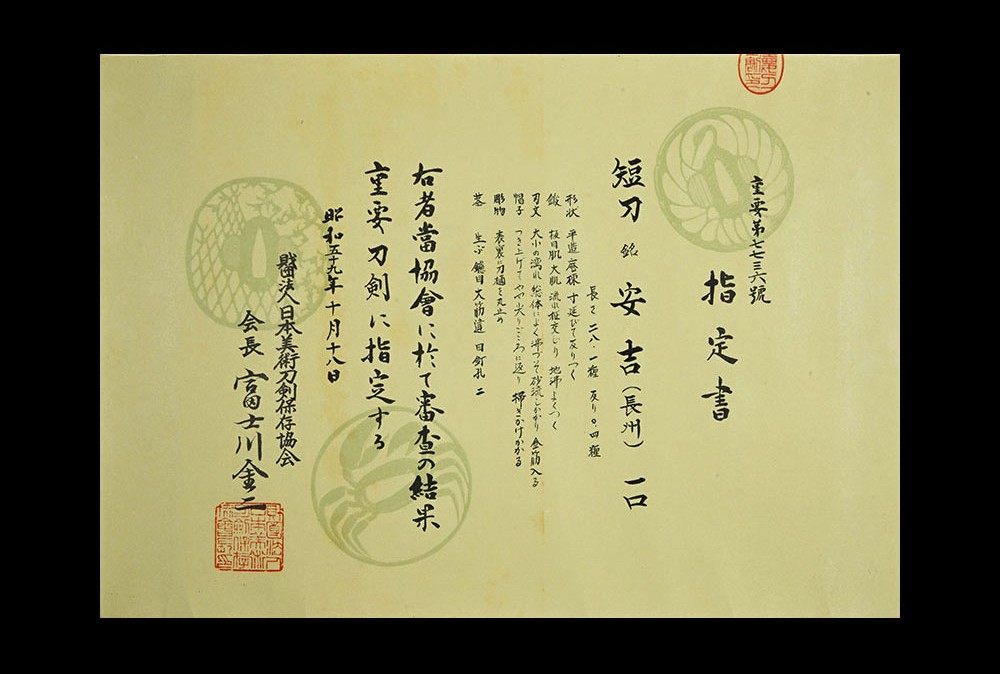 重要第七七三六號
指定書
短刀 銘 安吉(長州) 一口
長さ 二八・一糎 反り〇・四糎
形状 平造 庵棟 寸延びて反りつく
鍛 板目肌 大肌 流れ柾交じり 地沸よくつく
刃文 大小の濤れ 総体によく沸づき砂流しかかり 金筋入る
帽子 つき上げてやや尖りごころに返り 掃きかけかかる
彫物 表裏に刀樋を丸止め
茎 生ぶ 鑢目大筋違 目釘孔二
右者當協會に於て審査の結果
重要刀剣に指定する
昭和五十九年十月十八日
財団法人日本美術刀剣保存協会
会長 富士川金二